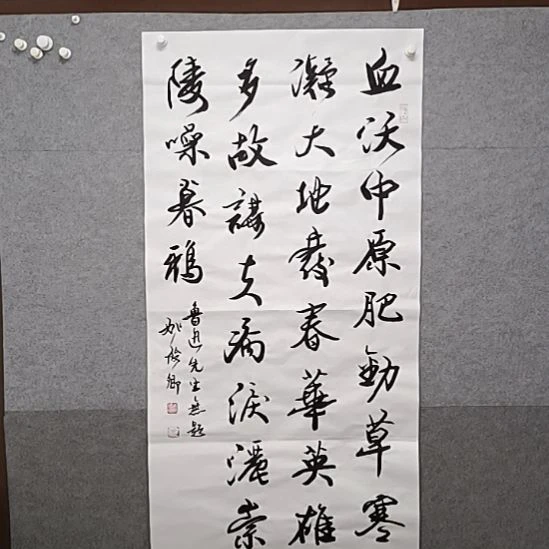 血沃中原肥勁草寒
凝大地發春華英雄
多故謀夫病淚灑崇
陵噪暮鴉
魯迅先生無題
姚俊卿